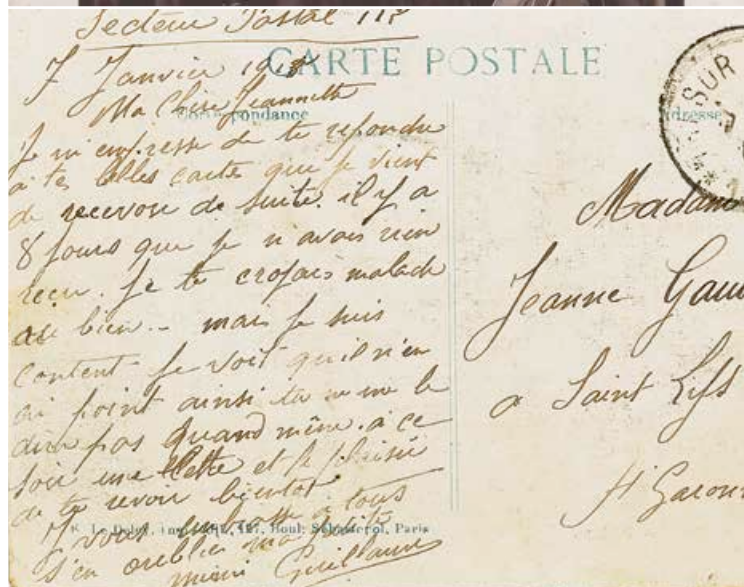 Secteur Postal 117
7 Janvier 1918
CARTE POSTALE
Ma Chère Jeannette
Correspondance
Je m'empresse de te repondre
à tes belles cartes que je vient
de recevoir de suite. il y a
8 jours que je n'avais rien
reçu. Je te croyais malade
ou bien.. mais je suis
content je voit qu'il n'en
ai point ainsi tu ne me le
dira pas quand même. a ce
soir une lettre et le plaisir
de te revoir bientot
Je vous embrasse a tous
s'en oublier
mimi Guillaume
Le Deley, imp., 127, Boul. Sébastopol, Paris
SUR
Adresse
Madam
Jeanne Gau
a Saint Lys
Hte Garon